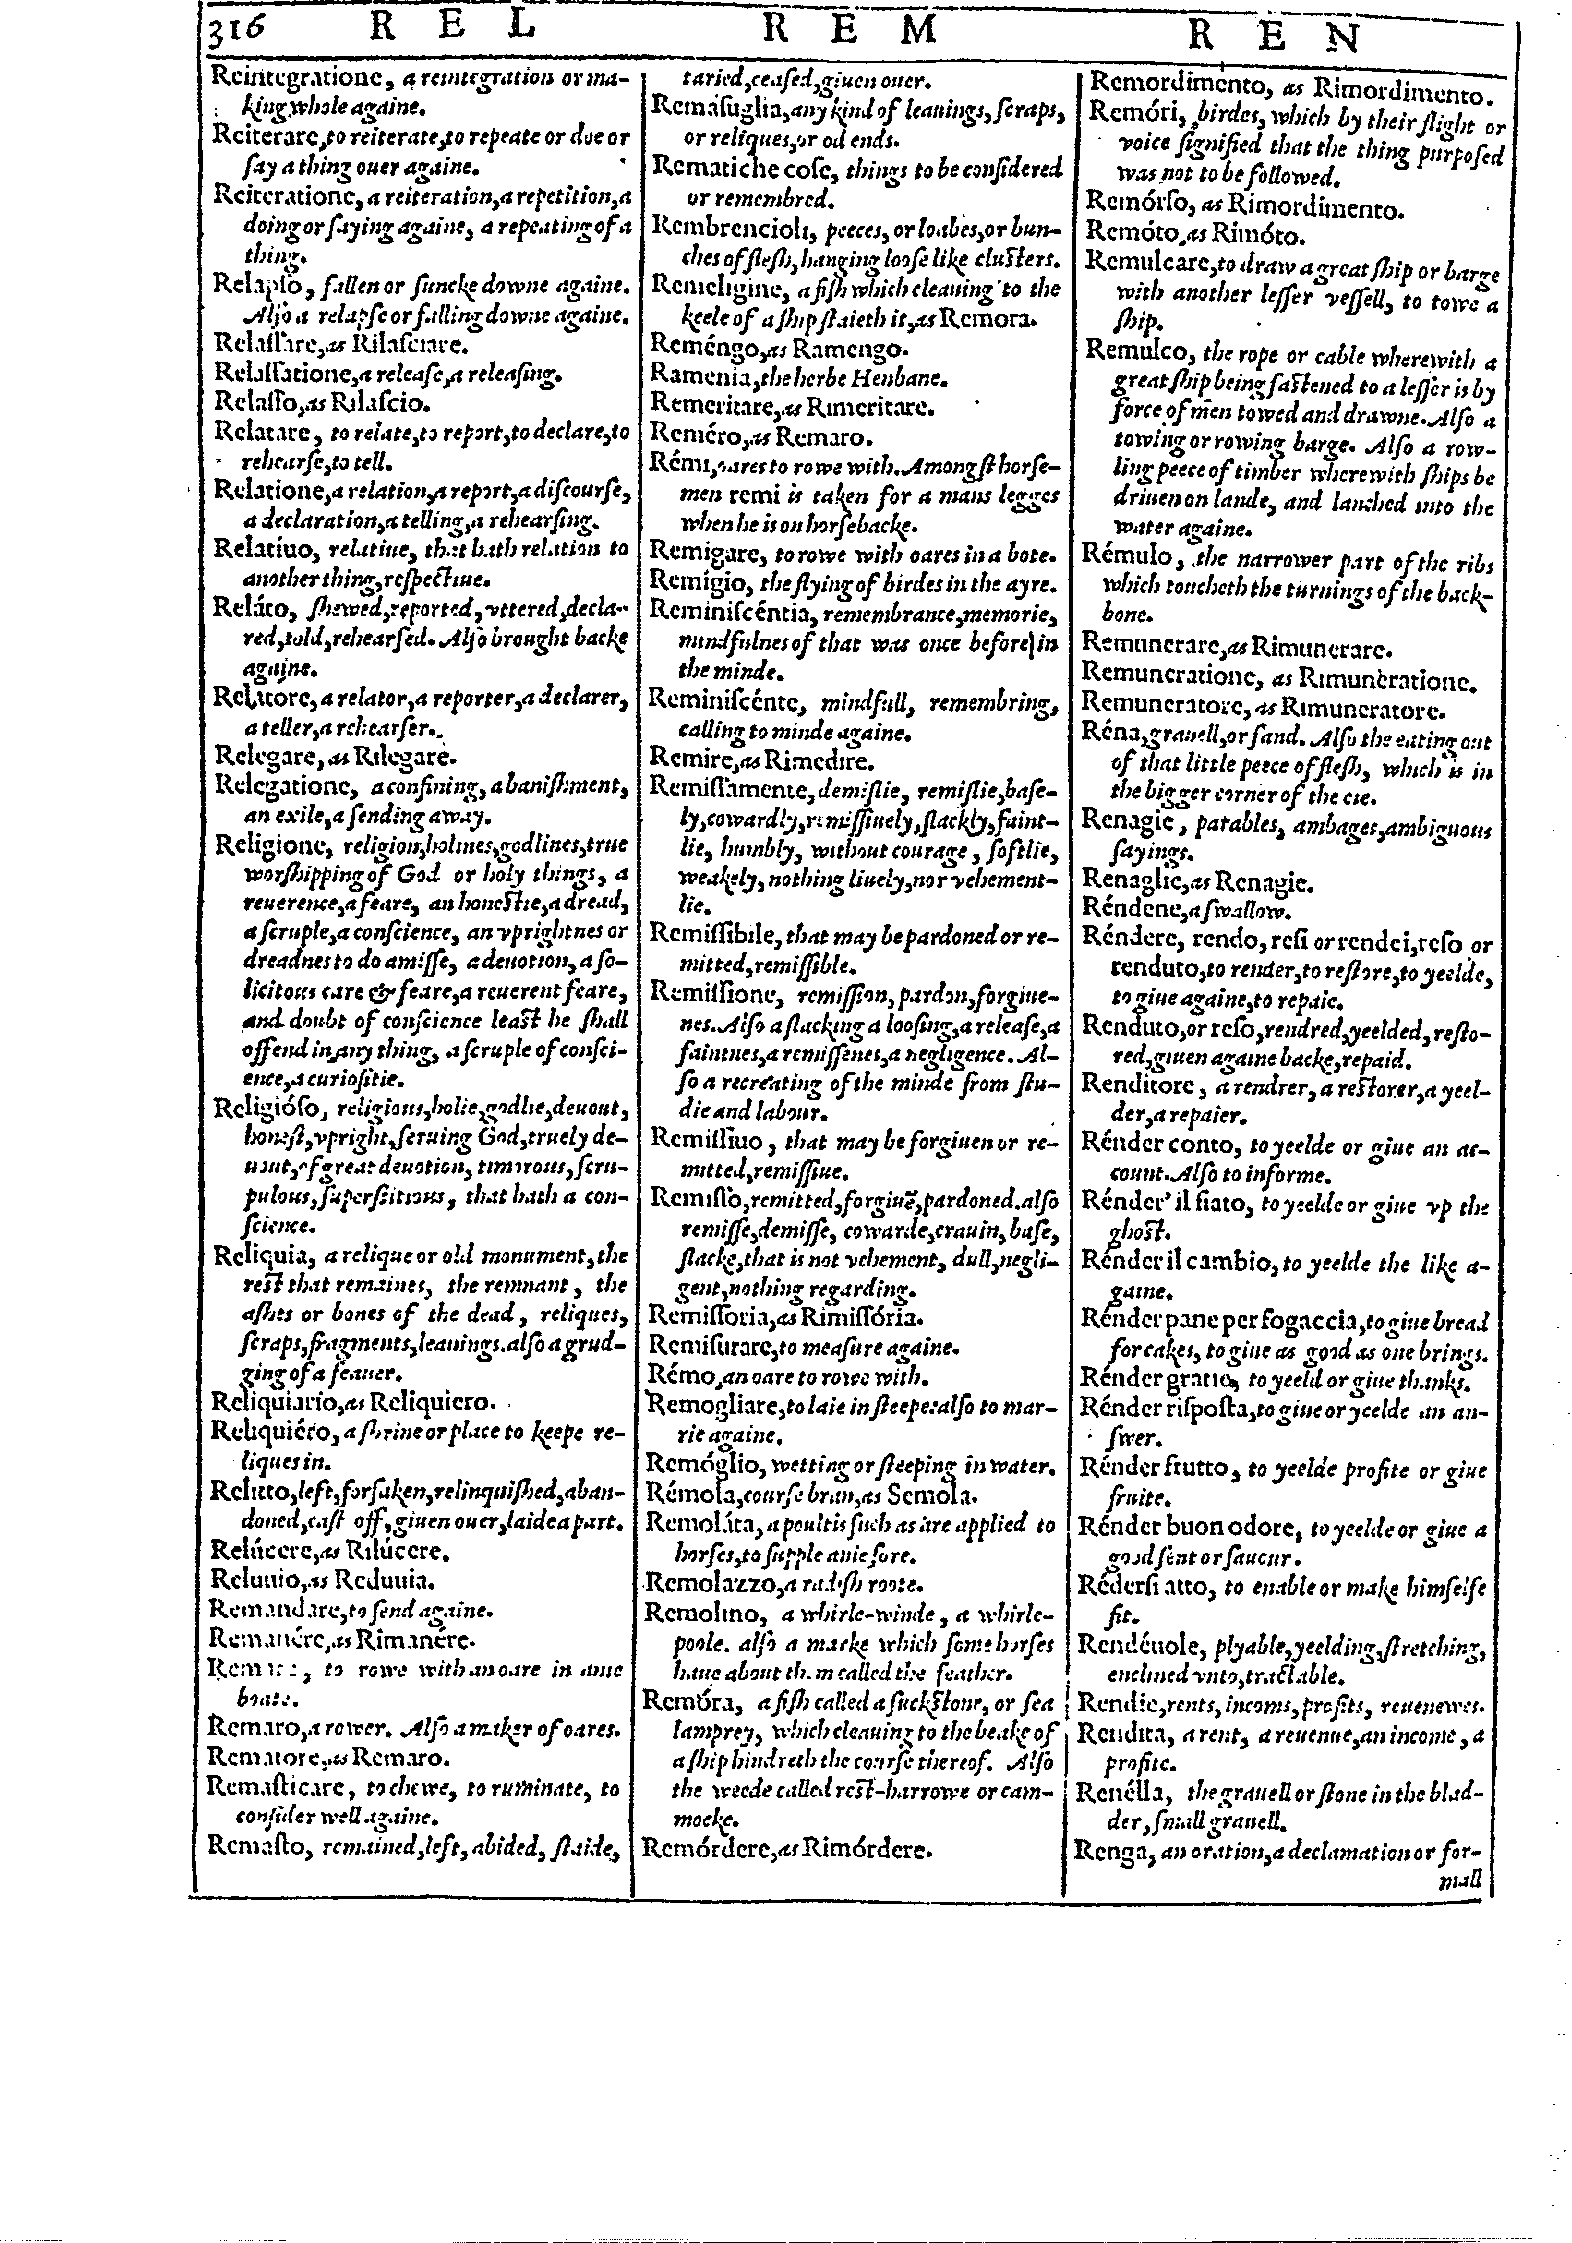 316 R E L R E M R E N
Reintegratione, a reintegration or ma-
king whole againe.
Reiterare, to reiterate, to repeate or doe or
ſay a thing ouer againe.
Reiteratione, a reiteration, a repetition, a
doing or ſaying againe, a repeating of a
thing.
Relapſo, fallen or ſuncke downe againe.
Alſo a relapſe or falling downe againe.
Relaſſare, as Rilaſciare.
Relaſſatione, a releaſe, a releaſing.
Relaſſo, as Rilaſcio.
Relatare, to relate, to report, to declare, to
rehearſe, to tell.
Relatione, a relation, a report, a diſcourſe,
a declaration, a telling, a rehearſing.
Relatiuo, relatiue, that hath relation to
another thing, reſpectiue.
Reláto, ſhewed, reported, vttered, decla-
red, told, rehearſed. Alſo brought backe
againe.
Relatore, a relator, a reporter, a declarer,
a teller, a rehearſer.
Relegare, as Rilegare.
Relegatione, a confining, a baniſhment,
an exile, a ſending away.
Religione, religion, holines, godlines, true
worſhipping of God or holy things, a
reuerence, a feare, an honeſtie, a dread,
a ſcruple, a conſcience, an vprightnes or
dreadnes to do amiſſe, a deuotion, a ſo-
licitous care & feare, a reuerent feare,
and doubt of conſcience leaſt he ſhall
offend in any thing, a ſcruple of conſci-
ence, a curioſitie.
Religióſo, religious, holie, godlie, deuout,
honeſt, vpright, ſeruing God, truely de-
uout, of great deuotion, timorous, ſcru-
pulous, ſuperſtitious, that hath a con-
ſcience.
Reliquia, a relique or old monument, the
reſt that remaines, the remnant, the
aſhes or bones of the dead, reliques,
ſcraps, fragments, leauings. alſo a grud-
ging of a feauer.
Reliquiario, as Reliquiero.
Reliquiéro, a ſhrine or place to keepe re-
liques in.
Relitto, left, forſaken, relinquiſhed, aban-
doned, caſt off, giuen ouer, laide a part.
Relúcere, as Rilúcere.
Reluuio, as Reduuia.
Remandare, to ſend againe.
Remanére, as Rimanére.
Remare, to rowe with an oare in anie
boate.
Remaro, a rower. Alſo a maker of oares.
Rematore, as Remaro.
Remaſticare, to chewe, to ruminate, to
conſider well againe.
Remaſto, remained, left, abided, ſtaide,
taried, ceaſed, giuen ouer.
Remáſuglia, any kind of leauings, ſcraps,
or reliques, or od ends.
Rematiche coſe, things to be conſidered
or remembred.
Rembrencioli, peeces, or loabes, or bun-
ches of fleſh, hanging looſe like cluſters.
Remeligine, a fiſh which cleauing to the
keele of a ſhip ſtaieth it, as Remora.
Reméngo, as Ramengo.
Ramenia, the herbe Henbane.
Remeritare, as Rimeritare.
Reméro, as Remaro.
Rémi, oares to rowe with. Amongſt horſe-
men remi is taken for a mans legges
when he is on horſebacke.
Remigare, to rowe with oares in a bote.
Remígio, the flying of birdes in the ayre.
Reminiſcéntia, remembrance, memorie,
mindfulnes of that was once before in
the minde.
Reminiſcénte, mindfull, remembring,
calling to minde againe.
Remire, as Rimedire.
Remiſſamente, demiſlie, remiſlie, baſe-
ly, cowardly, remiſſiuely, ſlackly, faint-
lie, humbly, without courage, ſoftlie,
weakely, nothing liuely, nor vehement-
lie.
Remiſſibile, that may be pardoned or re-
mitted, remiſſible.
Remiſſione, remiſſion, pardon, forgiue-
nes. Alſo a ſlacking a looſing, a releaſe, a
faintnes, a remiſſenes, a negligence. Al-
ſo a recreating of the minde from ſtu-
die and labour.
Remiſſiuo, that may be forgiuen or re-
mitted, remiſſiue.
Remiſſo, remitted, forgiuē, pardoned. alſo
remiſſe, demiſſe, cowarde, crauin, baſe,
ſlacke, that is not vehement, dull, negli-
gent, nothing regarding.
Remiſſoria, as Rimiſſória.
Remiſurare, to meaſure againe.
Rémo, an oare to rowe with.
Remogliare, to laie in ſteepe: alſo to mar-
rie againe.
Remóglio, wetting or ſteeping in water.
Rémola, courſe bran, as Semola.
Remoláta, a poultis ſuch as are applied to
horſes, to ſupple anie ſore.
Remolazzo, a radiſh roote.
Remolino, a whirle-winde, a whirle-
poole. alſo a marke which ſome horſes
haue about them called the feather.
Remóra, a fiſh called a ſuckſtone, or ſea
lamprey, which cleauing to the beake of
a ſhip hindreth the courſe thereof. Alſo
the weede called reſt-harrowe or cam-
mocke.
Remórdere, as Rimórdere.
Remordimento, as Rimordimento.
Remóri, birdes, which by their flight or
voice ſignified that the thing purpoſed
was not to be followed.
Remórſo, as Rimordimento.
Remóto, as Rimóto.
Remulcare, to draw a great ſhip or barge
with another leſſer veſſell, to towe a
ſhip.
Remulco, the rope or cable wherewith a
great ſhip being faſtened to a leſſer is by
force of men towed and drawne. Alſo a
towing or rowing barge. Alſo a row-
ling peece of timber wherewith ſhips be
driuen on lande, and lanched into the
water againe.
Rémulo, the narrower part of the ribs
which toucheth the turnings of the back-
bone.
Remunerare, as Rimunerare.
Remuneratione, as Rimuneratione.
Remuneratore, as Rimuneratore.
Réna, grauell, or ſand. Alſo the eating out
of that little peece of fleſh, which is in
the bigger corner of the eie.
Renagie, parables, ambages, ambiguous
ſayings.
Renaglie, as Renagie.
Réndene, a ſwallow.
Réndere, rendo, reſi or rendei, reſo or
renduto, to render, to reſtore, to yeelde,
to giue againe, to repaie.
Renduto, or reſo, rendred, yeelded, reſto-
red, giuen againe backe, repaid.
Renditore, a rendrer, a reſtorer, a yeel-
der, a repaier.
Rénder conto, to yeelde or giue an ac-
count. Alſo to informe.
Rénder' il fiato, to yeelde or giue vp the
ghoſt.
Rénder il cambio, to yeelde the like a-
gaine.
Rénder pane per fogaccia, to giue bread
for cakes, to giue as good as one brings.
Rénder gratie, to yeeld or giue thanks.
Rénder riſpoſta, to giue or yeelde an an-
ſwer.
Rénder frutto, to yeelde profite or giue
fruite.
Rénder buon odore, to yeelde or giue a
good ſent or ſauour.
Réderſi atto, to enable or make himſelfe
fit.
Rendéuole, plyable, yeelding, ſtretching,
enclined vnto, tractable.
Rendie, rents, incoms, profits, reuenewes.
Rendita, a rent, a reuenue, an income, a
profite.
Renélla, the grauell or ſtone in the blad-
der, ſmall grauell.
Renga, an oration, a declamation or for-
mall